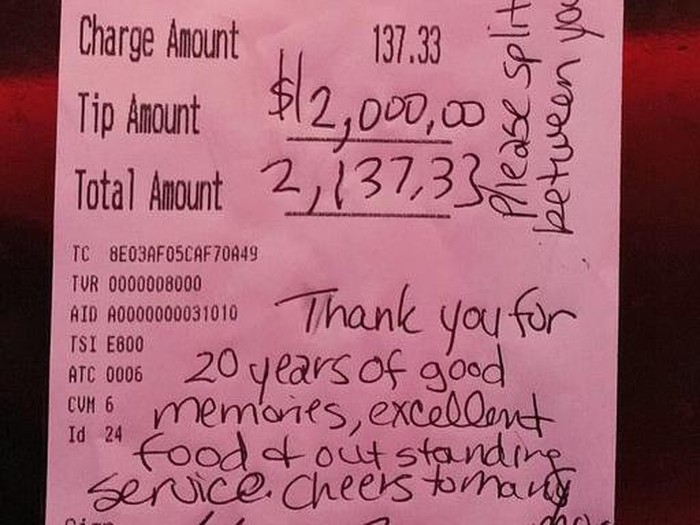 Charge Amount 137.33
Tip Amount $ 2,000,00
Total Amount 2,137,33
Please split
between you
TC 8E03AF05CAF70A49
TVR 0000008000
AID A0000000031010
TSI E800
ATC 0006
CVM 6
Id 24
Thank you for
20 years of good
memories, excellent
food & outstanding
service. Cheers to many